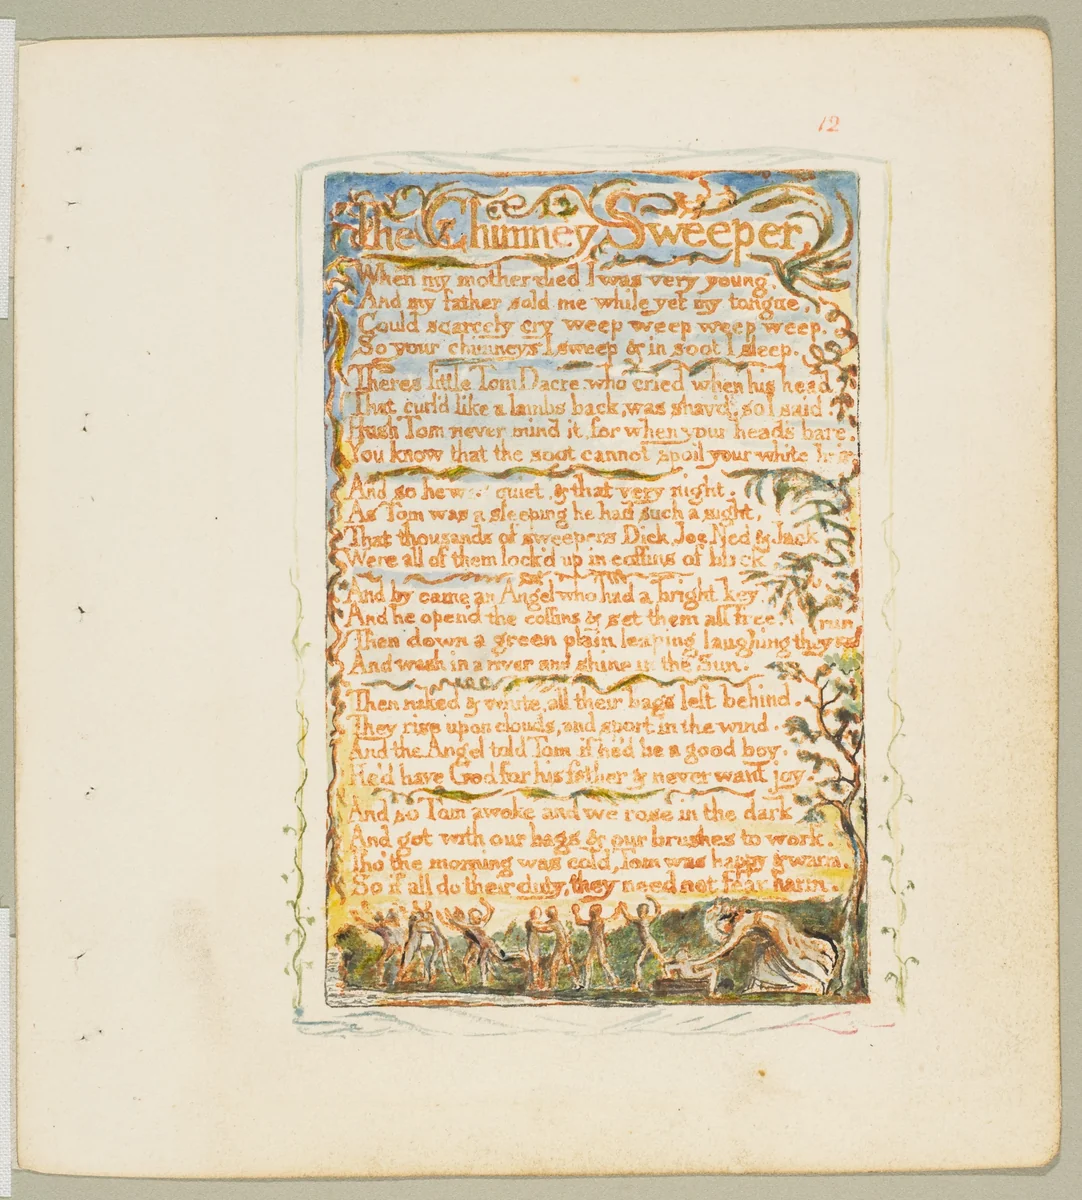 12
The Chimney Sweeper
When my mother died I was very young,
And my father sold me while yet my tongue,
Could scarcely cry weep weep weep weep.
So your chimneys I sweep & in soot I sleep.
Theres little Tom Dacre, who cried when his head
That curl'd like a lambs back, was shav'd, so I said
Hush Tom never mind it, for when your heads bare,
You know that the soot cannot spoil your white hair.
And so he was quiet, & that very night.
As Tom was a sleeping he had such a sight,
That thousands of sweepers Dick, Joe, Ned & Jack
Were all of them lock'd up in coffins of black
And by came an Angel who had a bright key
And he open'd the coffins & set them all free.
Then down a green plain leaping laughing they run
And wash in a river and shine in the Sun.
Then naked & white, all their bags left behind.
They rise upon clouds, and sport in the wind
And the Angel told Tom if he'd be a good boy.
He'd have God for his father & never want joy.
And so Tom awoke and we rose in the dark
And got with our bags & our brushes to work.
Tho' the morning was cold, Tom was happy & warm.
So if all do their duty, they need not fear harm.